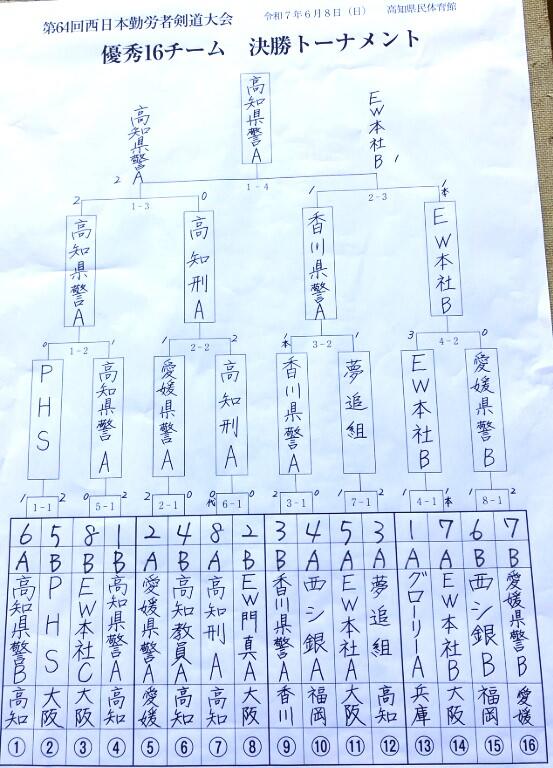 第64回西日本勤労者剣道大会 令和7年6月8日（日） 高知県民体育館
優秀16チーム 決勝トーナメント
高知県警A
高知県警A EW本社B
2 1
1-4
2 0 1 1本
1-3 2-3
高知県警A 高知刑A 香川県警A EW本社B
0 1 1 2 1本 1 3 0
1-2 2-2 3-2 4-2
PHS 高知県警A 愛媛県警A 高知刑A 香川県警A 夢追組 EW本社B 愛媛県警B
1 2 0 2 2 0 0代 0 2 0 1 2 1 1本 1 2
1-1 5-1 2-1 6-1 3-1 7-1 4-1 8-1
6 5 8 1 2 4 8 2 3 4 5 3 1 7 6 7
A B B B A B A B B A A A A A B B
高知県警B PHS EW本社C 高知県警A 愛媛県警A 高知教員A 高知刑A EW門真A 香川県警A 西シ銀A EW本社A 夢追組 グローリーA EW本社B 西シ銀B 愛媛県警B
高知 大阪 大阪 高知 愛媛 高知 高知 大阪 香川 福岡 大阪 高知 兵庫 大阪 福岡 愛媛
① ② ③ ④ ⑤ ⑥ ⑦ ⑧ ⑨ ⑩ ⑪ ⑫ ⑬ ⑭ ⑮ ⑯